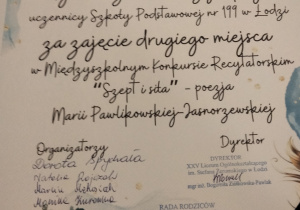 uczennicy Szkoły Podstawowej nr 199 w Łodzi
za zajęcie drugiego miejsca
w Międzyszkolnym Konkursie Recytatorskim
"Szept i siła" - poezja
Marii Pawlikowskiej-Jasnorzewskiej
Organizatorzy
Dyrektor
Dorota
DYREKTOR
XXV Liceum Ogólnokształcącego
im. Stefana Żeromskiego w Łodzi
mgr inż. Bogumiła Zabłocka-Pawlak
RADA RODZICÓW